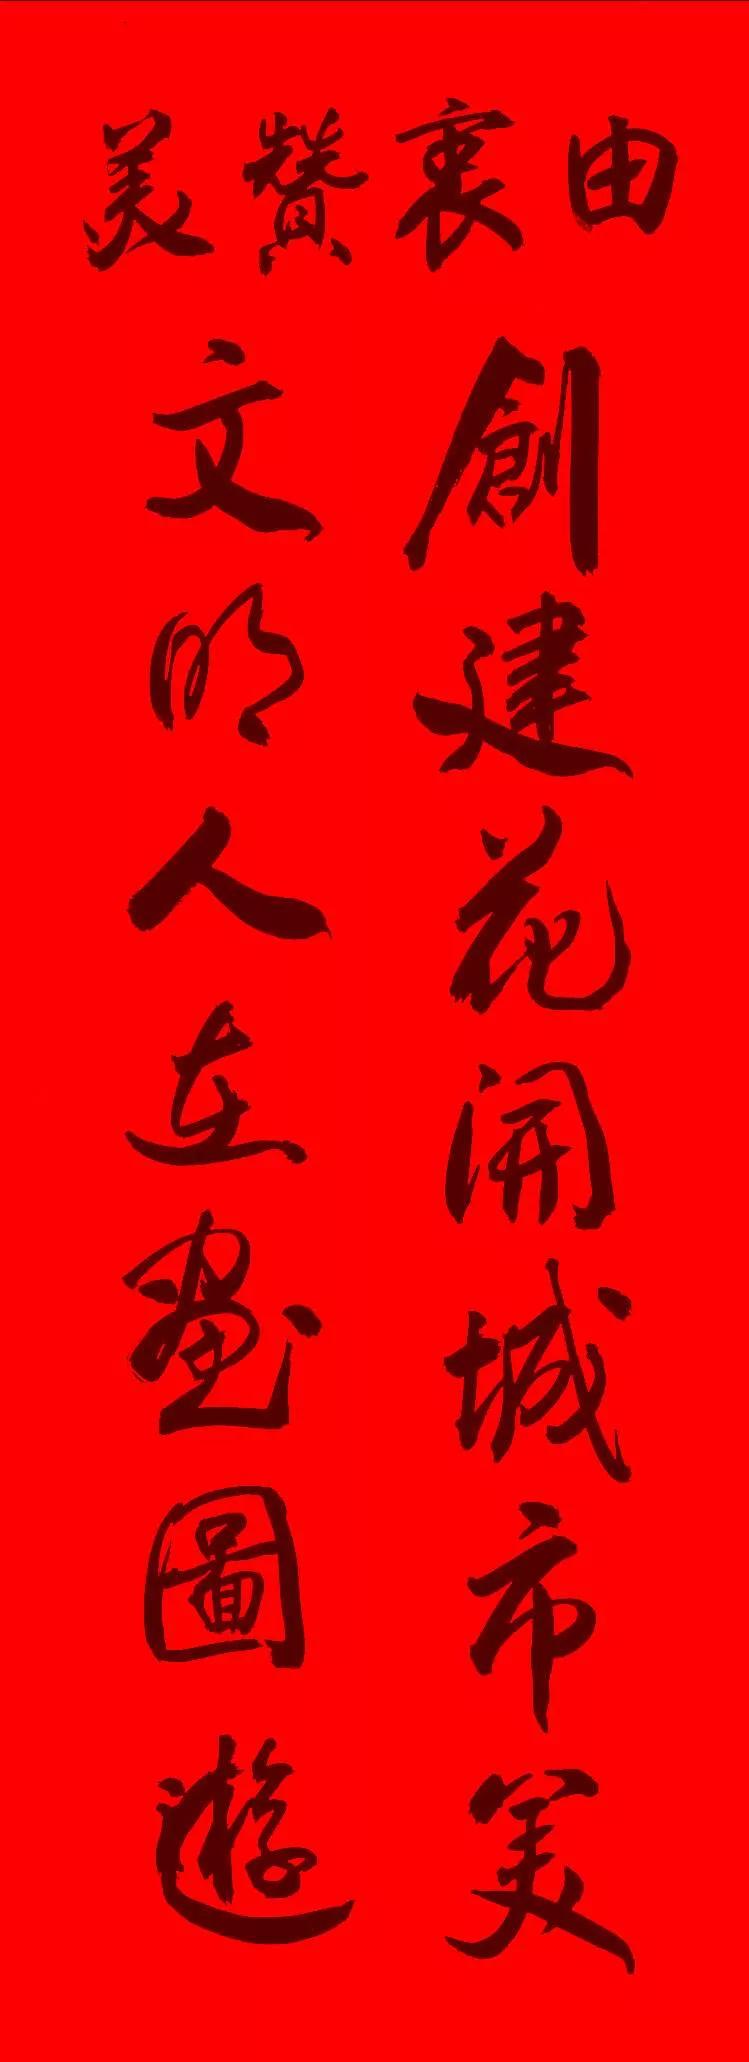 由衷贊美
創建花開城市美
文明人在畫圖遊